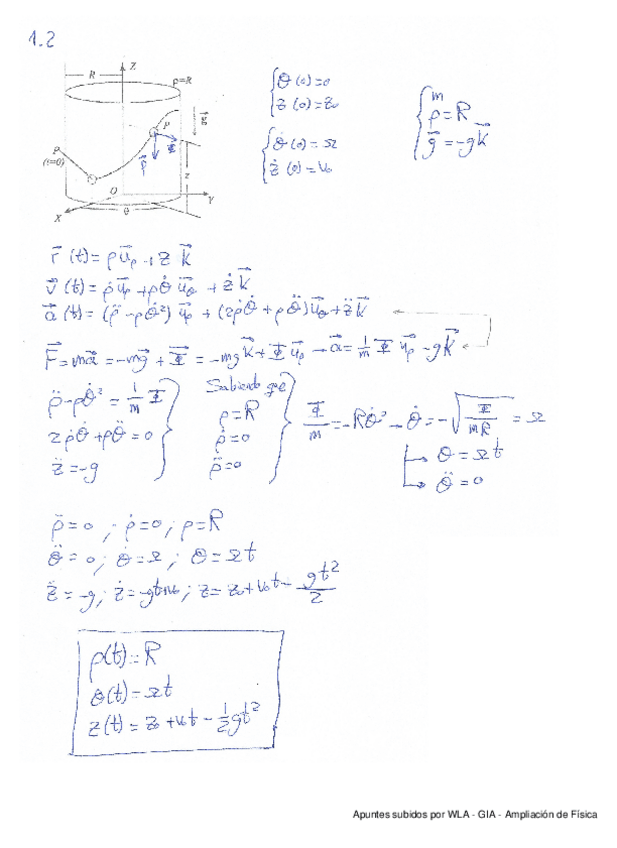 1.2
Z
R
ρ=R
P
P
(t=0)
Φ
z
O
θ
X
Y
{θ(0)=0
z(0)=z₀
{θ̇(0)=Ω
ż(0)=v₀
{m
ρ=R
g⃗=-gk⃗
r⃗(t)=ρu⃗ρ+zk⃗
v⃗(t)=ρ̇u⃗ρ+ρθ̇u⃗θ+żk⃗
a⃗(t)=(ρ̈-ρθ̇²)u⃗ρ+(2ρ̇θ̇+ρθ̈)u⃗θ+z̈k⃗
F⃗=ma⃗=-mg⃗+Φ⃗=-mgk⃗+Φu⃗ρ→a⃗=1/m Φ u⃗ρ-gk⃗
ρ̈-ρθ̇²=1/m Φ
2ρ̇θ̇+ρθ̈=0
z̈=-g
Sabiendo que
ρ=R
ρ̇=0
ρ̈=0
Φ/m=-Rθ̇²→θ̇=-√(Φ/mR)=Ω
↳θ=Ωt
↳θ̈=0
ρ̈=0; ρ̇=0; ρ=R
θ̈=0; θ̇=Ω; θ=Ωt
z̈=-g; ż=-gt+v₀; z=z₀+v₀t-gt²/2
ρ(t)=R
θ(t)=Ωt
z(t)=z₀+v₀t-½gt²
Apuntes subidos por WLA - GIA - Ampliación de Física